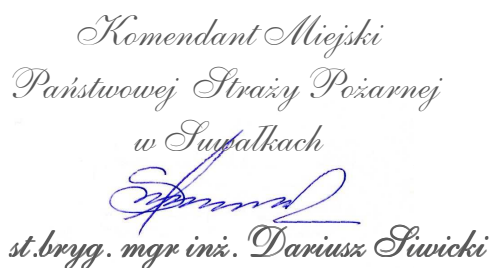 Komendant Miejski
Państwowej Straży Pożarnej
w Suwałkach
st.bryg. mgr inż. Dariusz Siwicki